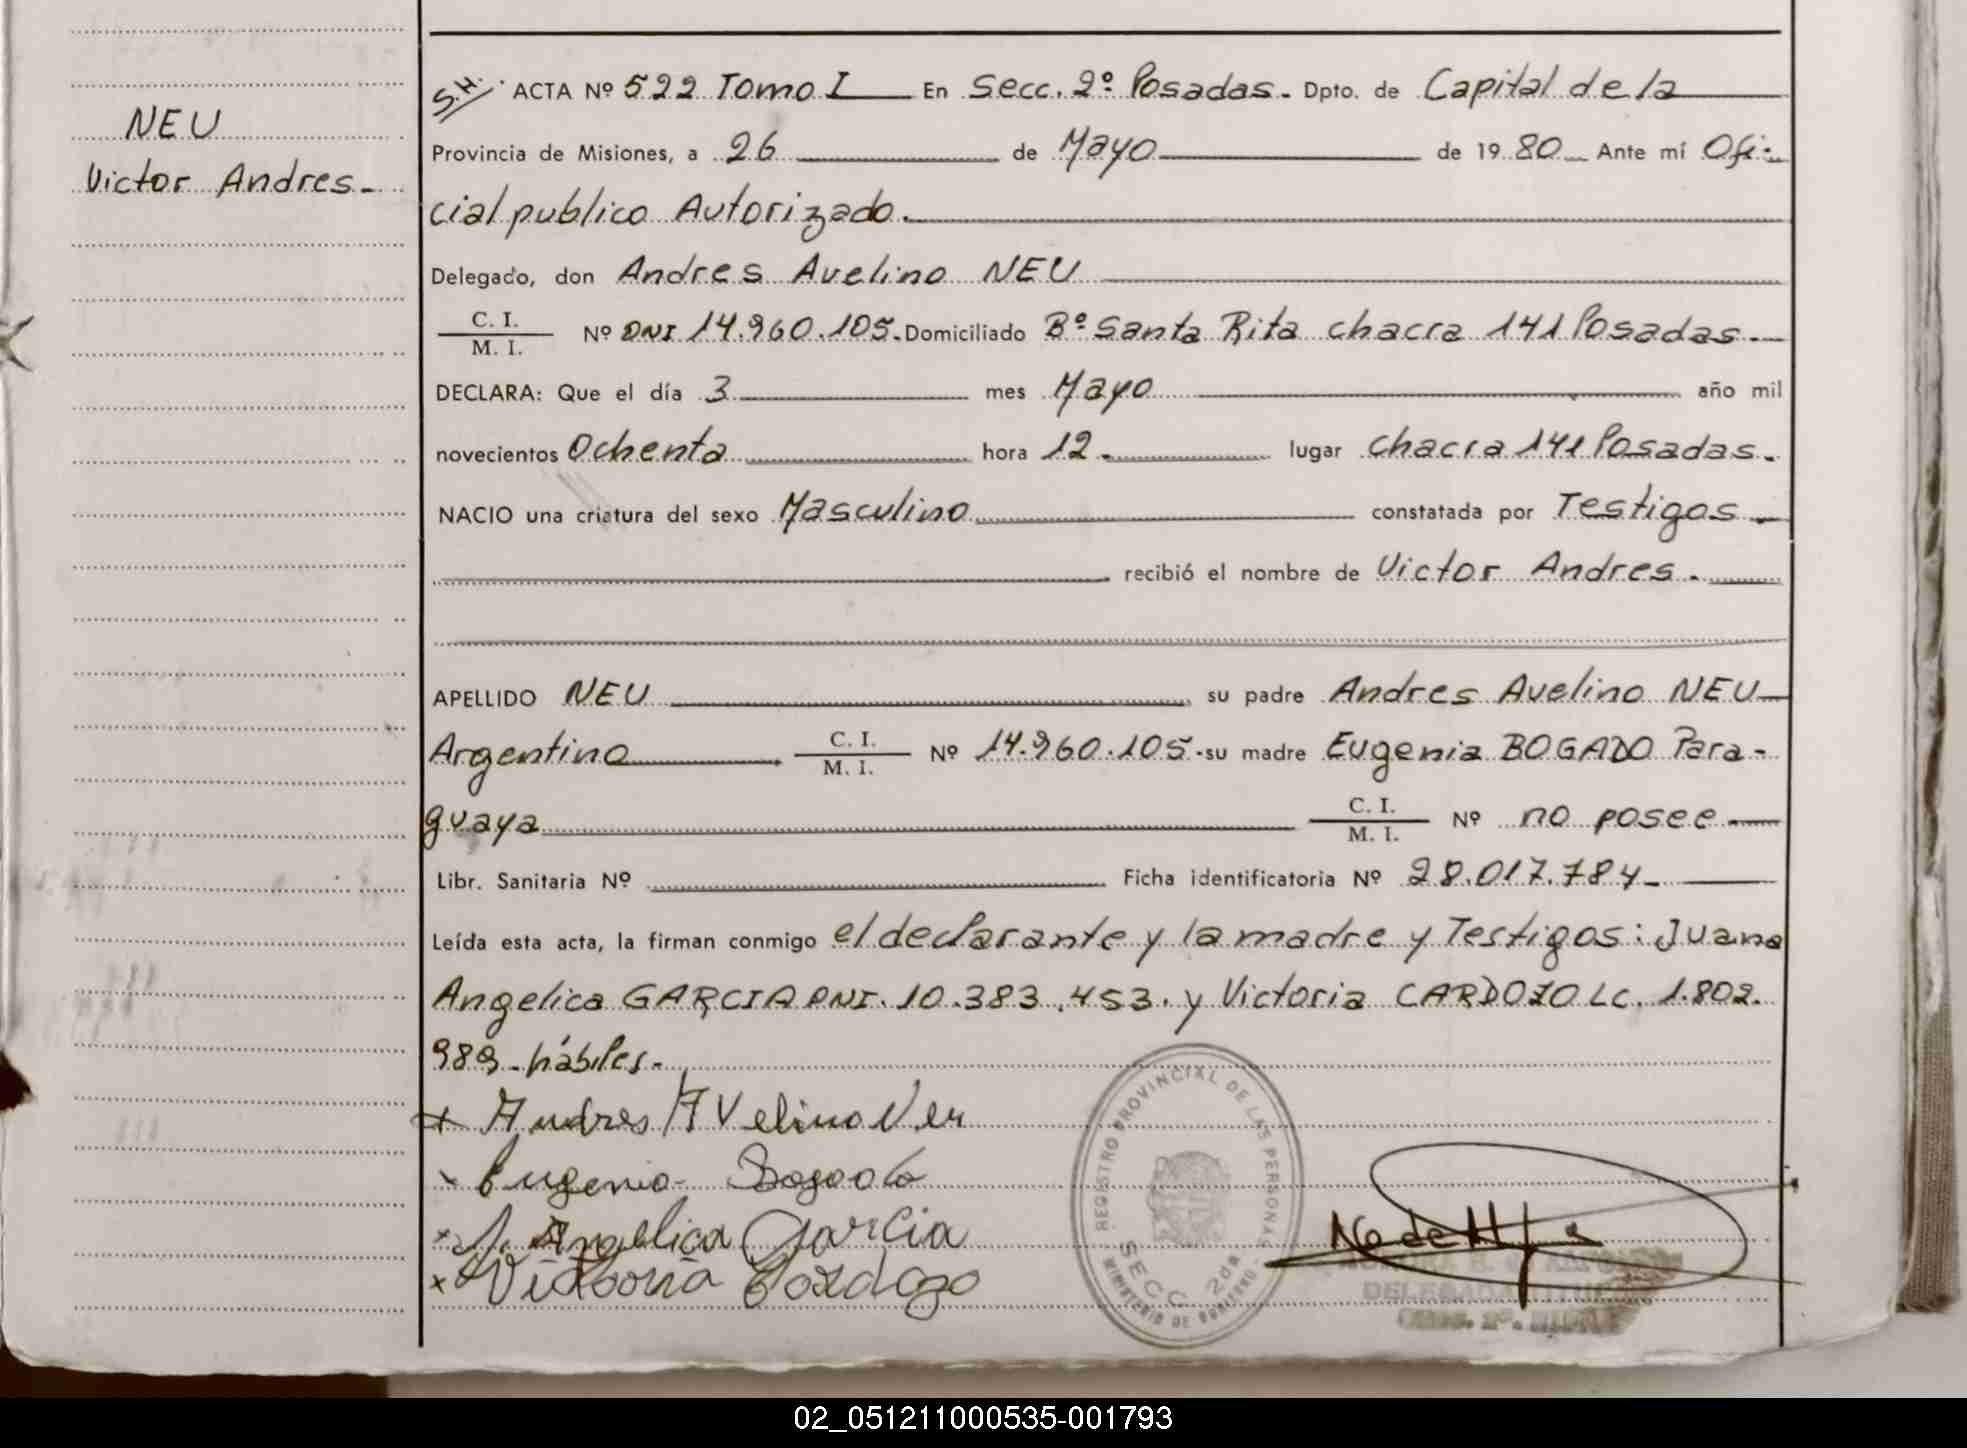 NEU
Victor Andres-
S.H. ACTA Nº 522 Tomo I En Secc. 2º Posadas. Dpto. de Capital de la
Provincia de Misiones, a 26 de Mayo de 1980 Ante mí Ofi-
cial publico Autorizado.
Delegado, don Andres Avelino NEU
C. I.
M. I. Nº DNI 14.960.105. Domiciliado Bº Santa Rita chacra 141 Posadas.
DECLARA: Que el día 3 mes Mayo año mil
novecientos Ochenta hora 12. lugar chacra 141 Posadas.
NACIO una criatura del sexo Masculino constatada por Testigos
recibió el nombre de Victor Andres.
APELLIDO NEU su padre Andres Avelino NEU
Argentino C. I.
M. I. Nº 14.960.105. su madre Eugenia BOGADO Para-
guaya C. I.
M. I. Nº no posee
Libr. Sanitaria Nº Ficha identificatoria Nº 28.017.784
Leída esta acta, la firman conmigo el declarante y la madre y Testigos: Juana
Angelica GARCIA DNI. 10.383.453. y Victoria CARDOZO LC. 1.802.
989 - hábiles.
x Andres Avelino Neu
x Eugenia Bogado
x J. Angelica Garcia
x Victoria Cardozo
REGISTRO PROVINCIAL DE LAS PERSONAS
SECC. 2da
MINISTERIO DE GOBIERNO
02_051211000535-001793